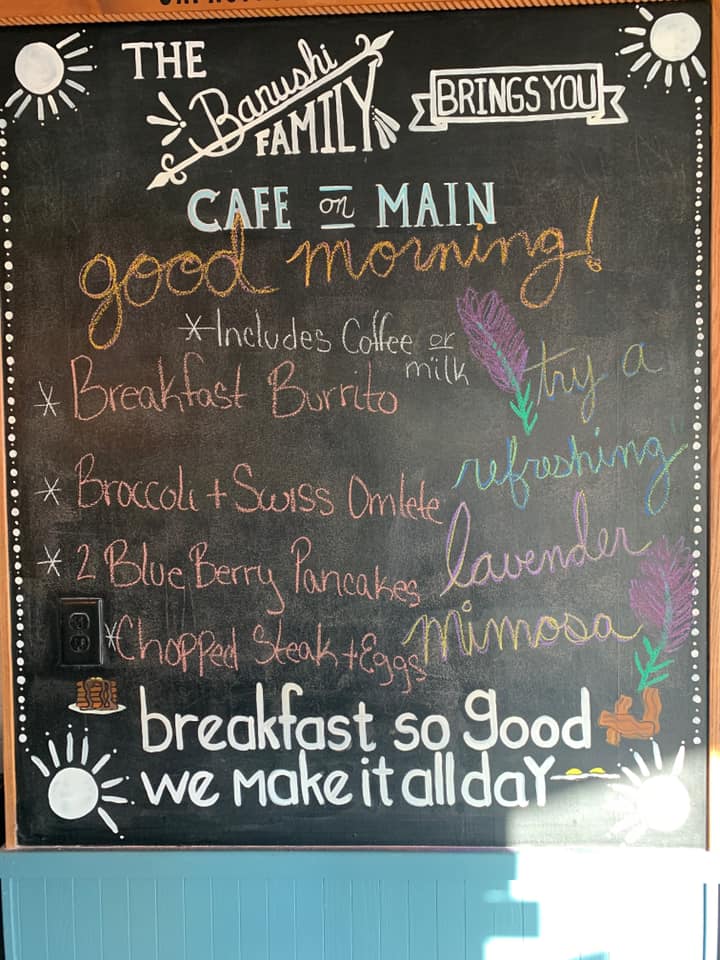 THE Banushi FAMILY BRINGS YOU
CAFE on MAIN
good morning!
*Includes Coffee or milk
* Breakfast Burrito
* Broccoli + Swiss Omlete
* 2 BlueBerry Pancakes
*Chopped Steak + Eggs
try a
refreshing"
lavender
mimosa
breakfast so good
we make it all day